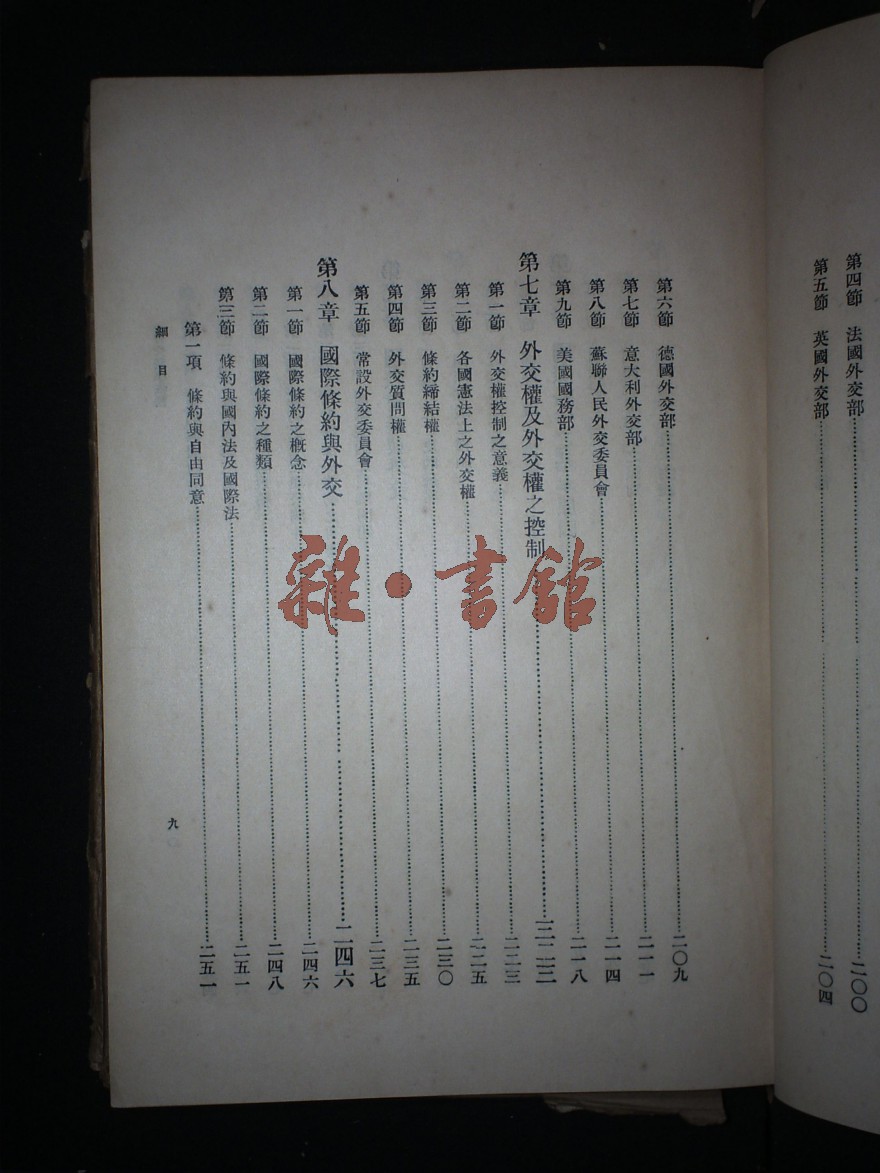 第四節　法國外交部……二〇〇
第五節　英國外交部……二〇四
第六節　德國外交部……二〇九
第七節　意大利外交部……二一一
第八節　蘇聯人民外交委員會……二一四
第九節　美國國務部……二一八
第七章　外交權及外交權之控制……二二三
第一節　外交權控制之意義……二二三
第二節　各國憲法上之外交權……二二五
第三節　條約締結權……二三〇
第四節　外交質問權……二三五
第五節　常設外交委員會……二三七
第八章　國際條約與外交……二四六
第一節　國際條約之概念……二四六
第二節　國際條約之種類……二四八
第三節　條約與國內法及國際法……二五一
第一項　條約與自由同意……二五一
細目
九
雜·書館